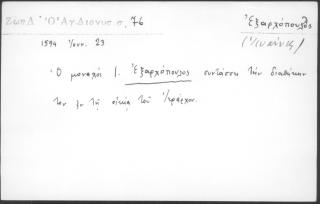 Ζωπ Δ' Ὁ Ἁγ Διονυσ σ, 76
Ἐξαρχόπουλος
(Ἰωάννης)
1594 Ἰουν. 23
Ὁ μοναχὸς Ι. Ἐξαρχόπουλος συντάσσει τὴν διαθήκην
του ἐν τῇ οἰκίᾳ τοῦ